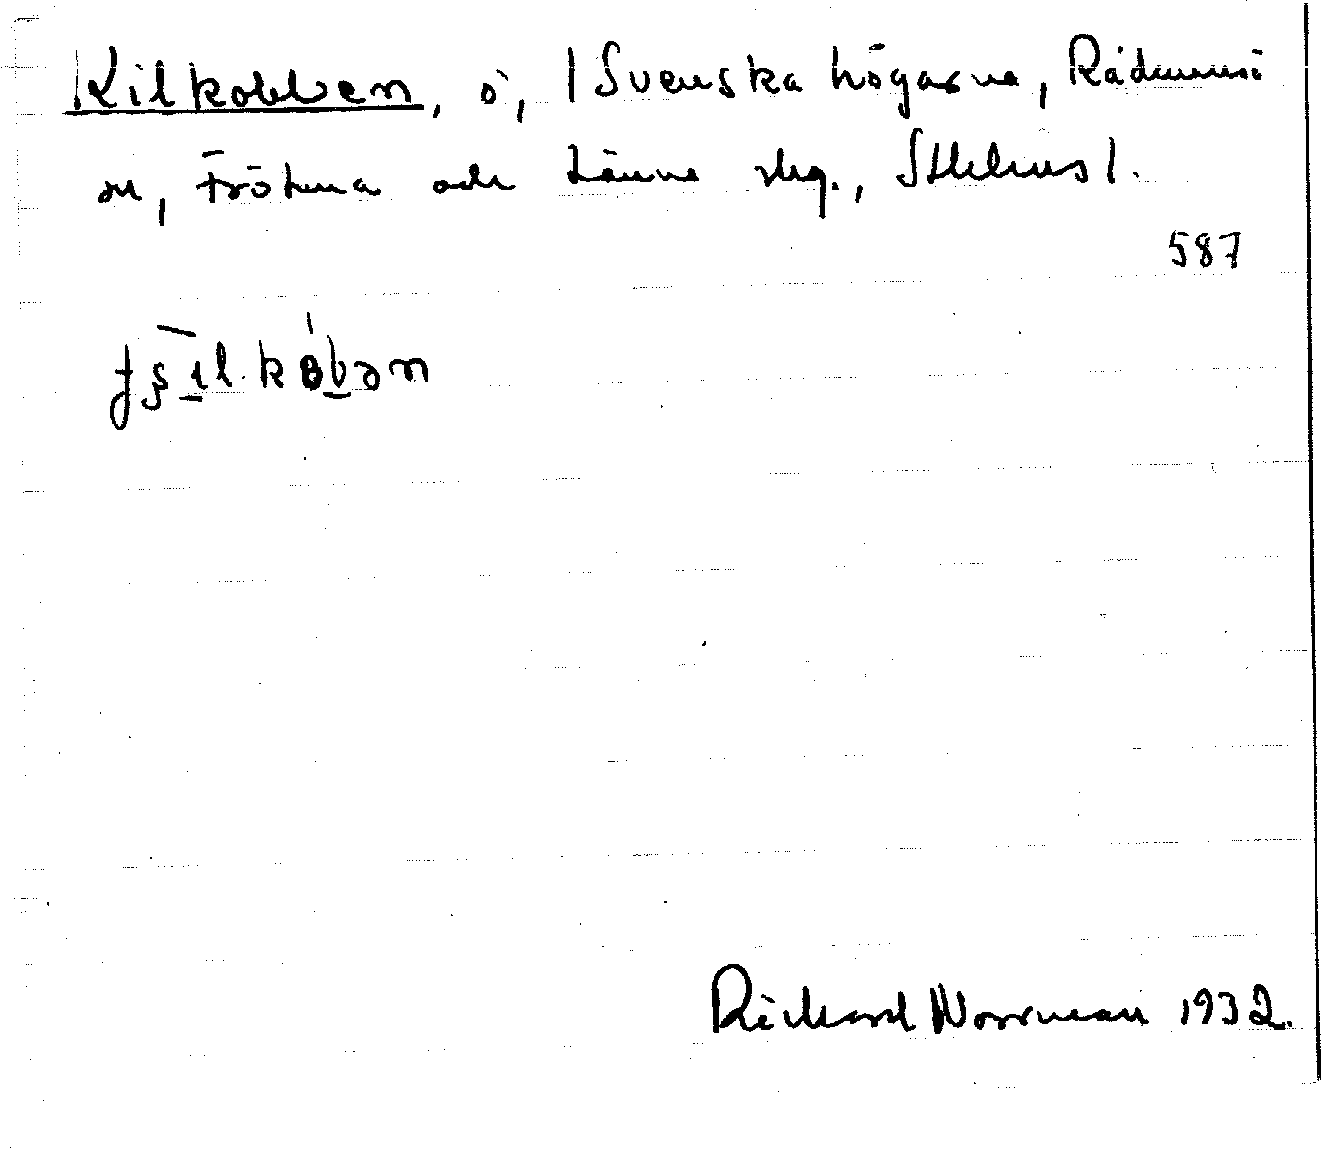 Kilkobben, ö, i Svenska högarna, Rådmansö
sn, Frötuna och Länna skg., Sthlms l.
587
Rickard Norrman 1932.